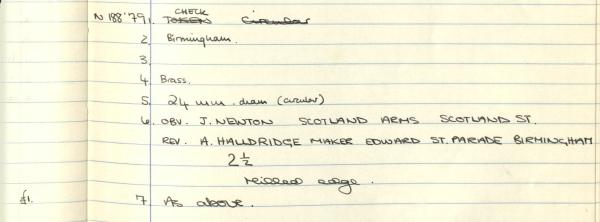 CHECK
N 188'79 1. TOKEN Circular
2. Birmingham.
3.
4. Brass.
5. 24 mm. diam (circular)
6. OBV. J. NEWTON SCOTLAND ARMS SCOTLAND ST.
REV. A. HALLDRIDGE MAKER EDWARD ST. PARADE BIRMINGHAM
2 ½
Milled edge.
£1. 7 As above.